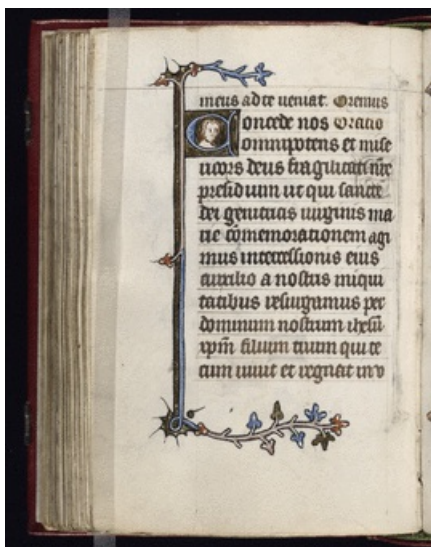 meus ad te ueniat. Oremus
Concede nos Oratio
omnipotens et mise
ricors deus fragilitati nr̄e
presidium ut qui sancte
dei genitricis uirginis ma
rie cōmemorationem agi
mus intercessionis eius
auxilio a nostris iniqui
tatibus resurgamus per
dominum nostrum ihesū
xp̄m filium tuum qui te
cum uiuit et regnat in v